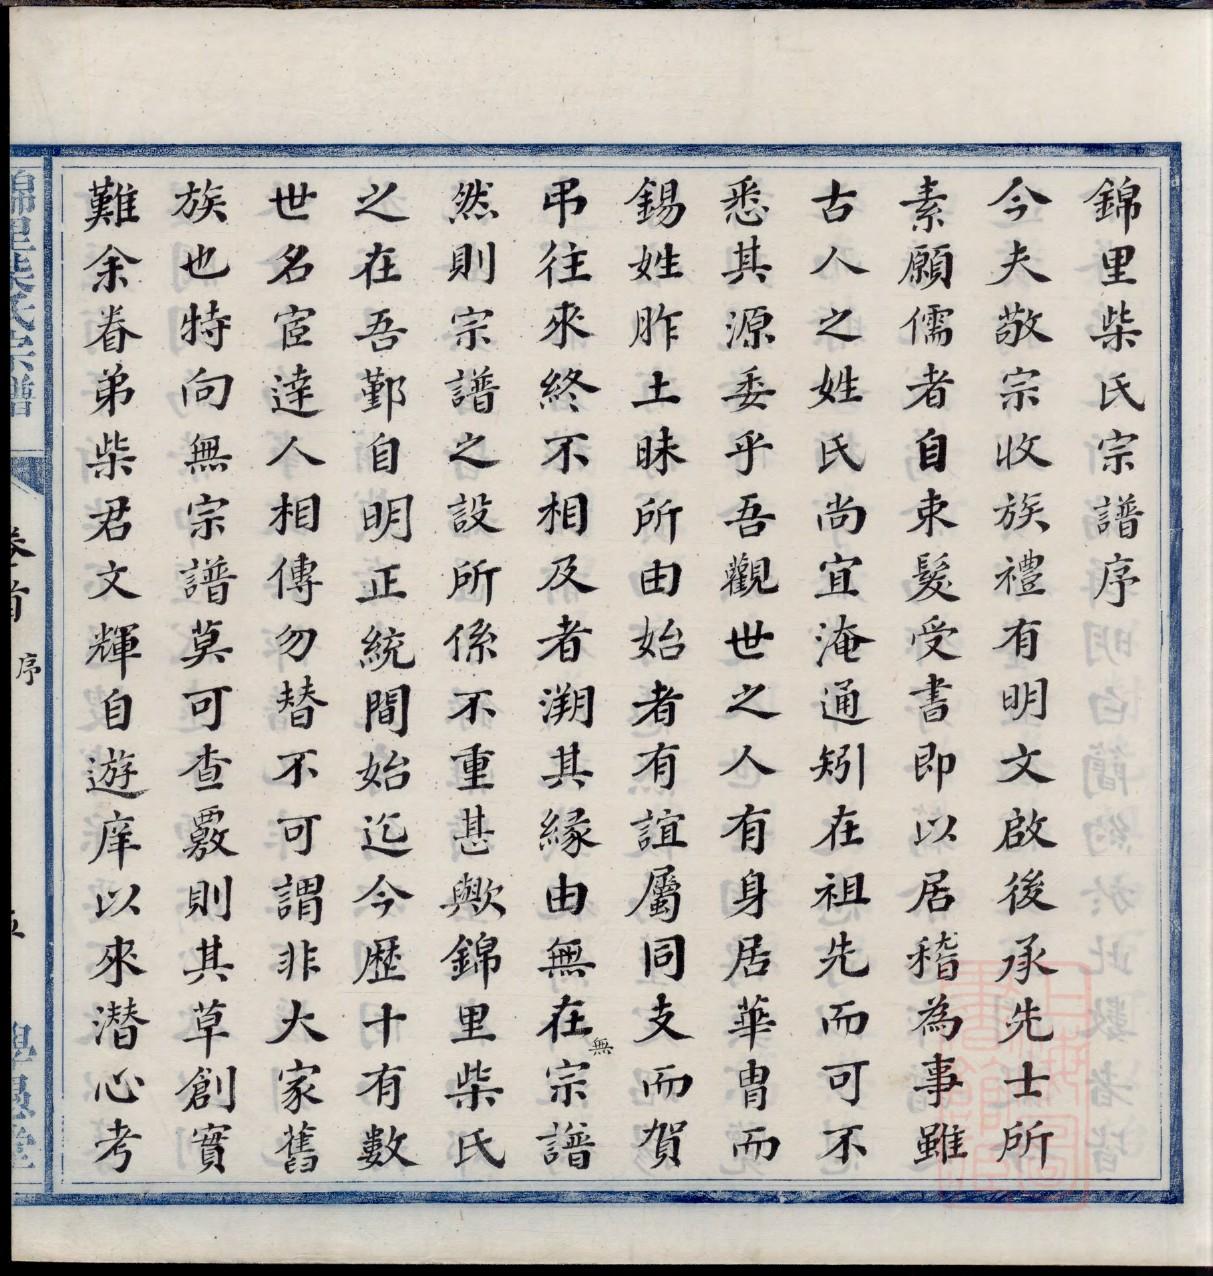 錦里柴氏宗譜序
今夫敬宗收族禮有明文啟後承先士所
素願儒者自束髮受書即以居稽為事雖
古人之姓氏尚宜淹通矧在祖先而可不
悉其源委乎吾觀世之人有身居華胄而
錫姓胙土昧所由始者有誼屬同支而賀
弔往來終不相及者溯其緣由無在宗譜
無
然則宗譜之設所係不重甚歟錦里柴氏
之在吾鄞自明正統間始迄今歷十有數
世名宦達人相傳勿替不可謂非大家舊
族也特向無宗譜莫可查覈則其草創實
難余眷弟柴君文輝自遊庠以來潜心考
錦里柴氏宗譜
卷首
序
五